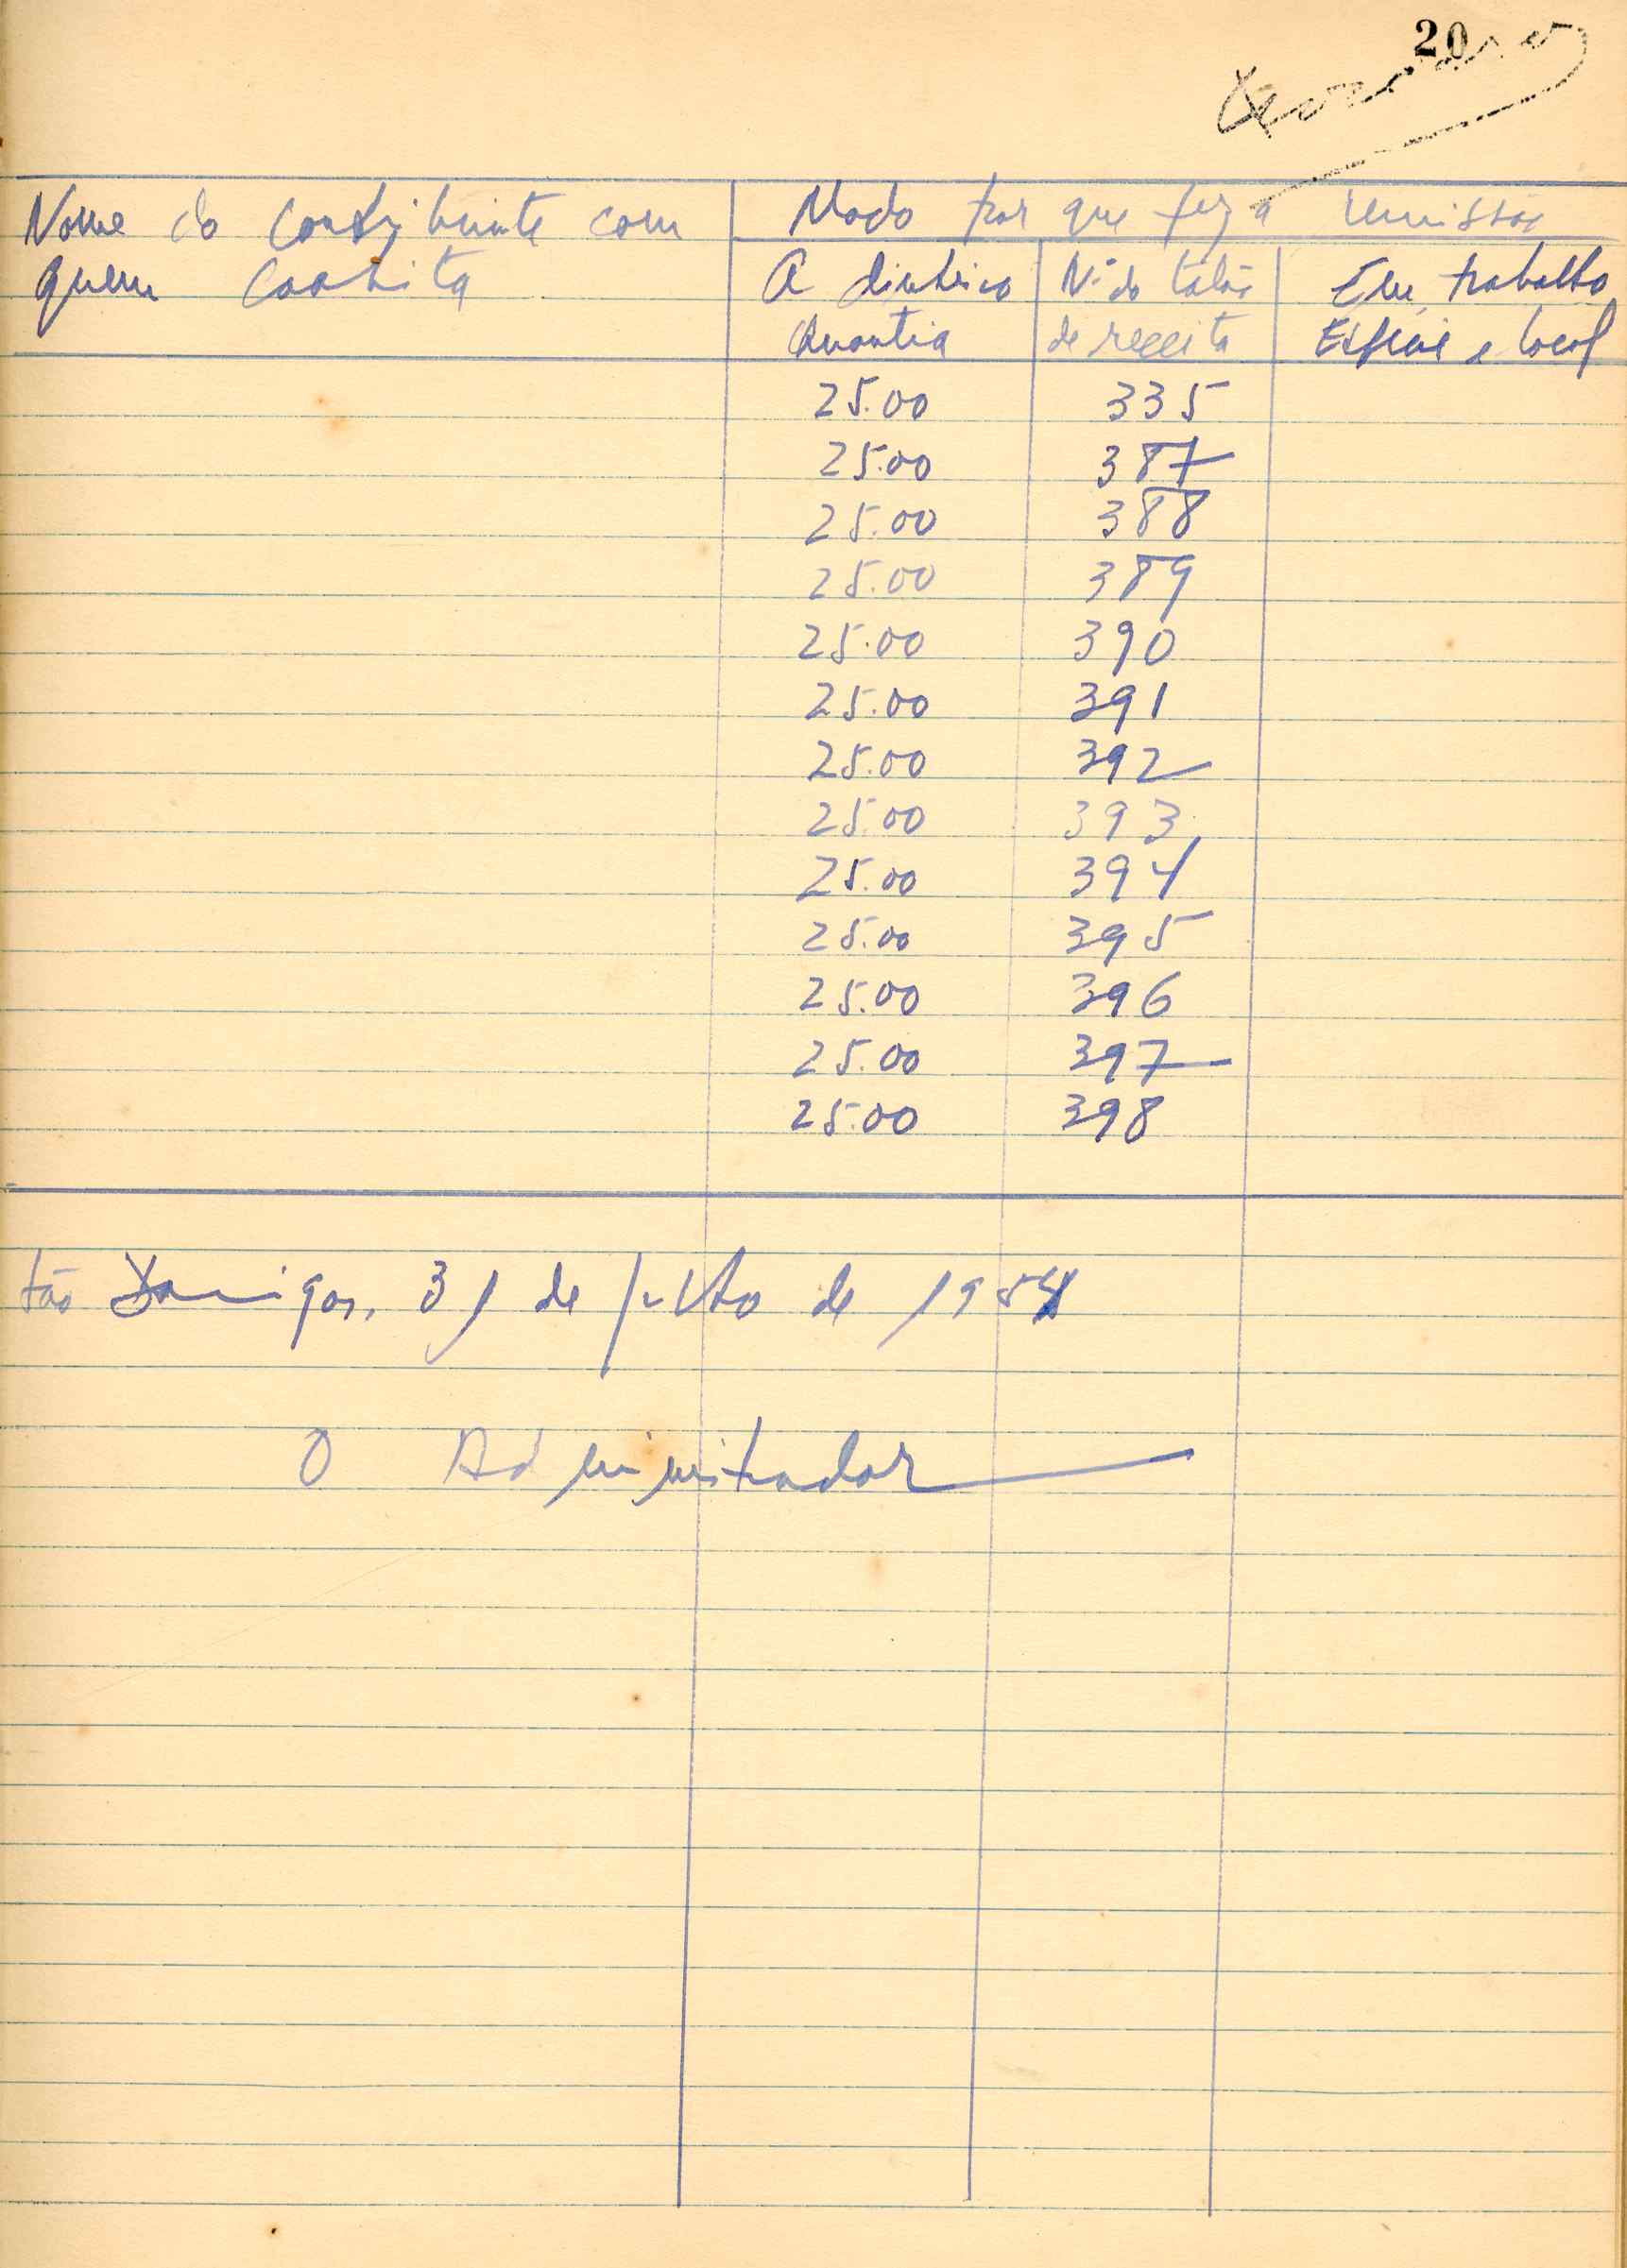 20
Nome do contribuinte com
quem coabita
Modo por que fez a remissão
A dinheiro
Quantia
Nº do talão
de receita
Em trabalho
Espécie e local
25.00 335
25.00 387
25.00 388
25.00 389
25.00 390
25.00 391
25.00 392
25.00 393
25.00 394
25.00 395
25.00 396
25.00 397
25.00 398
São Domingos, 31 de julho de 1954
O Administrador